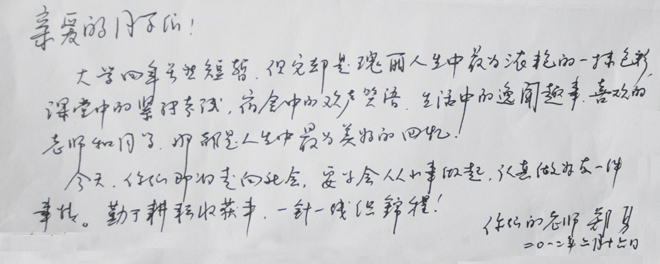 亲爱的同学们!
大学四年虽然短暂,但它却是瑰丽人生中最为浓艳的一抹色彩,
课堂中的紧张专注,宿舍中的欢声笑语,生活中的逸闻趣事,喜欢的
老师和同学,那都是人生中最为美好的回忆!
今天,你们即将走向社会,要学会从小事做起,认真做好每一件
事情。勤于耕耘收获丰,一针一线织锦程!
你们的老师 郭
二〇一二年六月十六日